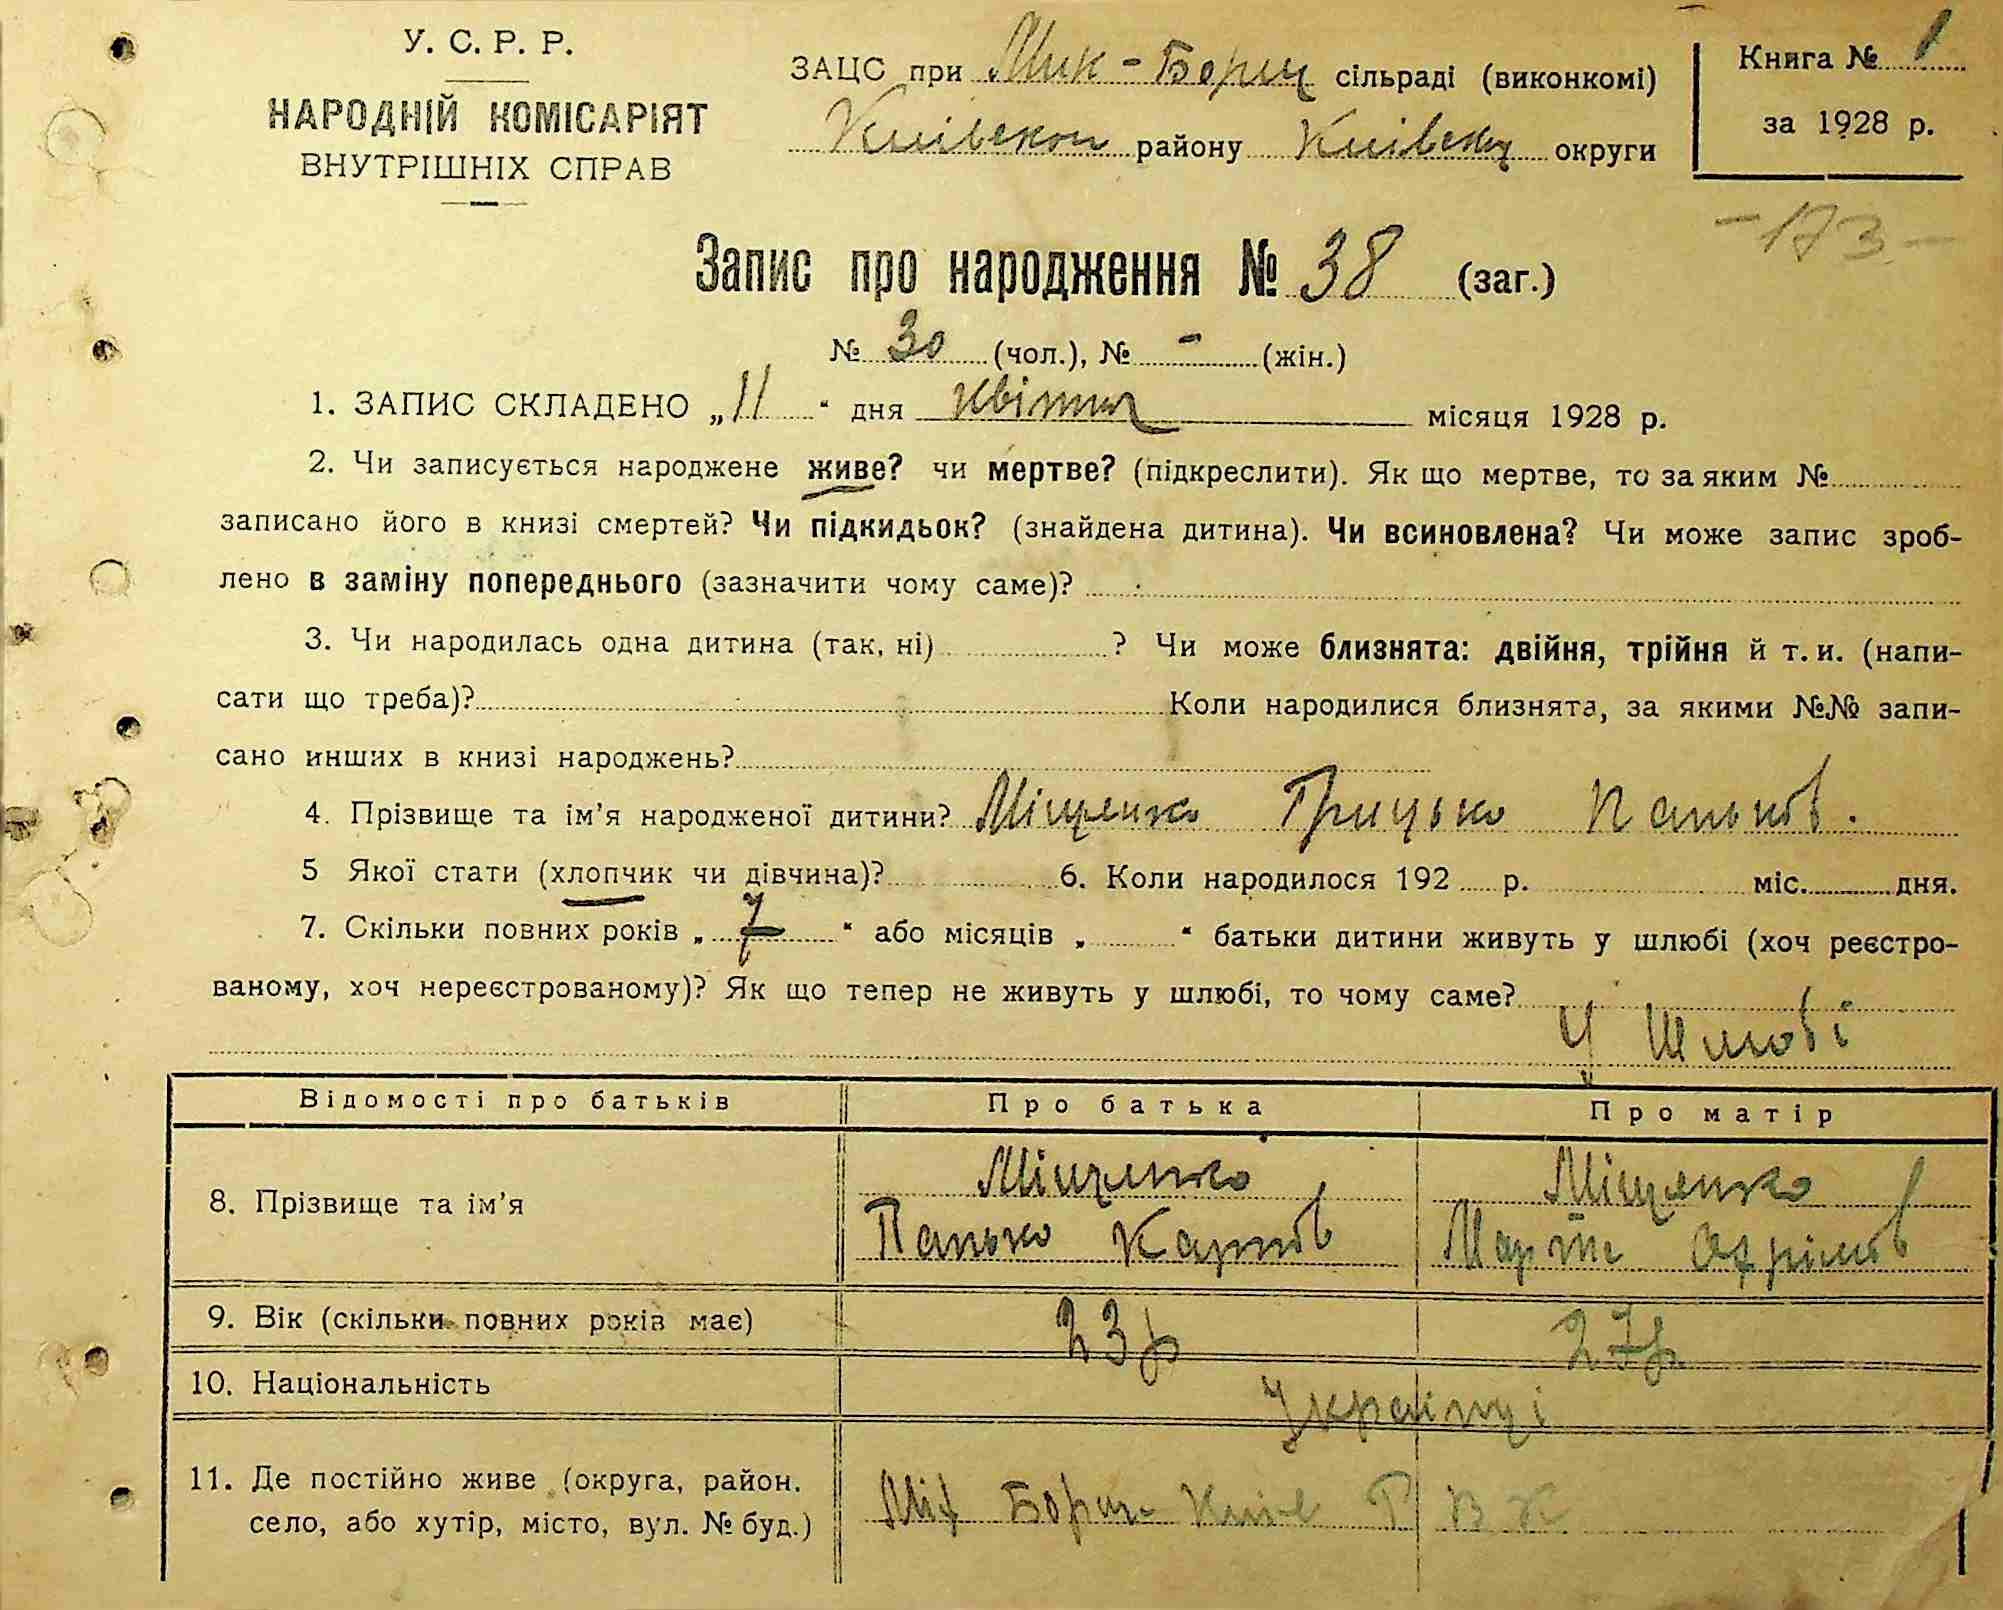 У. С. Р. Р.
НАРОДНІЙ КОМІСАРІЯТ
ВНУТРІШНІХ СПРАВ
ЗАЦС при Мик-Борщ сільраді (виконкомі)
Київської району Київськ округи
Книга № 1
за 1928 р.
-173-
Запис про народження № 38 (заг.)
№ 30 (чол.), № - (жін.)
1. ЗАПИС СКЛАДЕНО „11" дня квітня місяця 1928 р.
2. Чи записується народжене живе? чи мертве? (підкреслити). Як що мертве, то за яким №
записано його в книзі смертей? Чи підкидьок? (знайдена дитина). Чи всиновлена? Чи може запис зроб-
лено в заміну попереднього (зазначити чому саме)?
3. Чи народилась одна дитина (так, ні) ? Чи може близнята: двійня, трійня й т. и. (напи-
сати що треба)? Коли народилися близнята, за якими №№ запи-
сано инших в книзі народжень?
4. Прізвище та ім'я народженої дитини? Міщенко Грицько Паньков.
5 Якої стати (хлопчик чи дівчина)? 6. Коли народилося 192 р. міс. дня.
7. Скільки повних років „ 7 " або місяців „ " батьки дитини живуть у шлюбі (хоч реєстро-
ваному, хоч нереєстрованому)? Як що тепер не живуть у шлюбі, то чому саме?
У Шлюбі
Відомості про батьків Про батька Про матір
8. Прізвище та ім'я
Міщенко Міщенко
Панько Карпов Марта Охрімов
9. Вік (скільки повних років має) 23 р 27 р.
10. Національність Українці
11. Де постійно живе (округа, район,
село, або хутір, місто, вул. № буд.)
Мих Борщ Київ Р В К